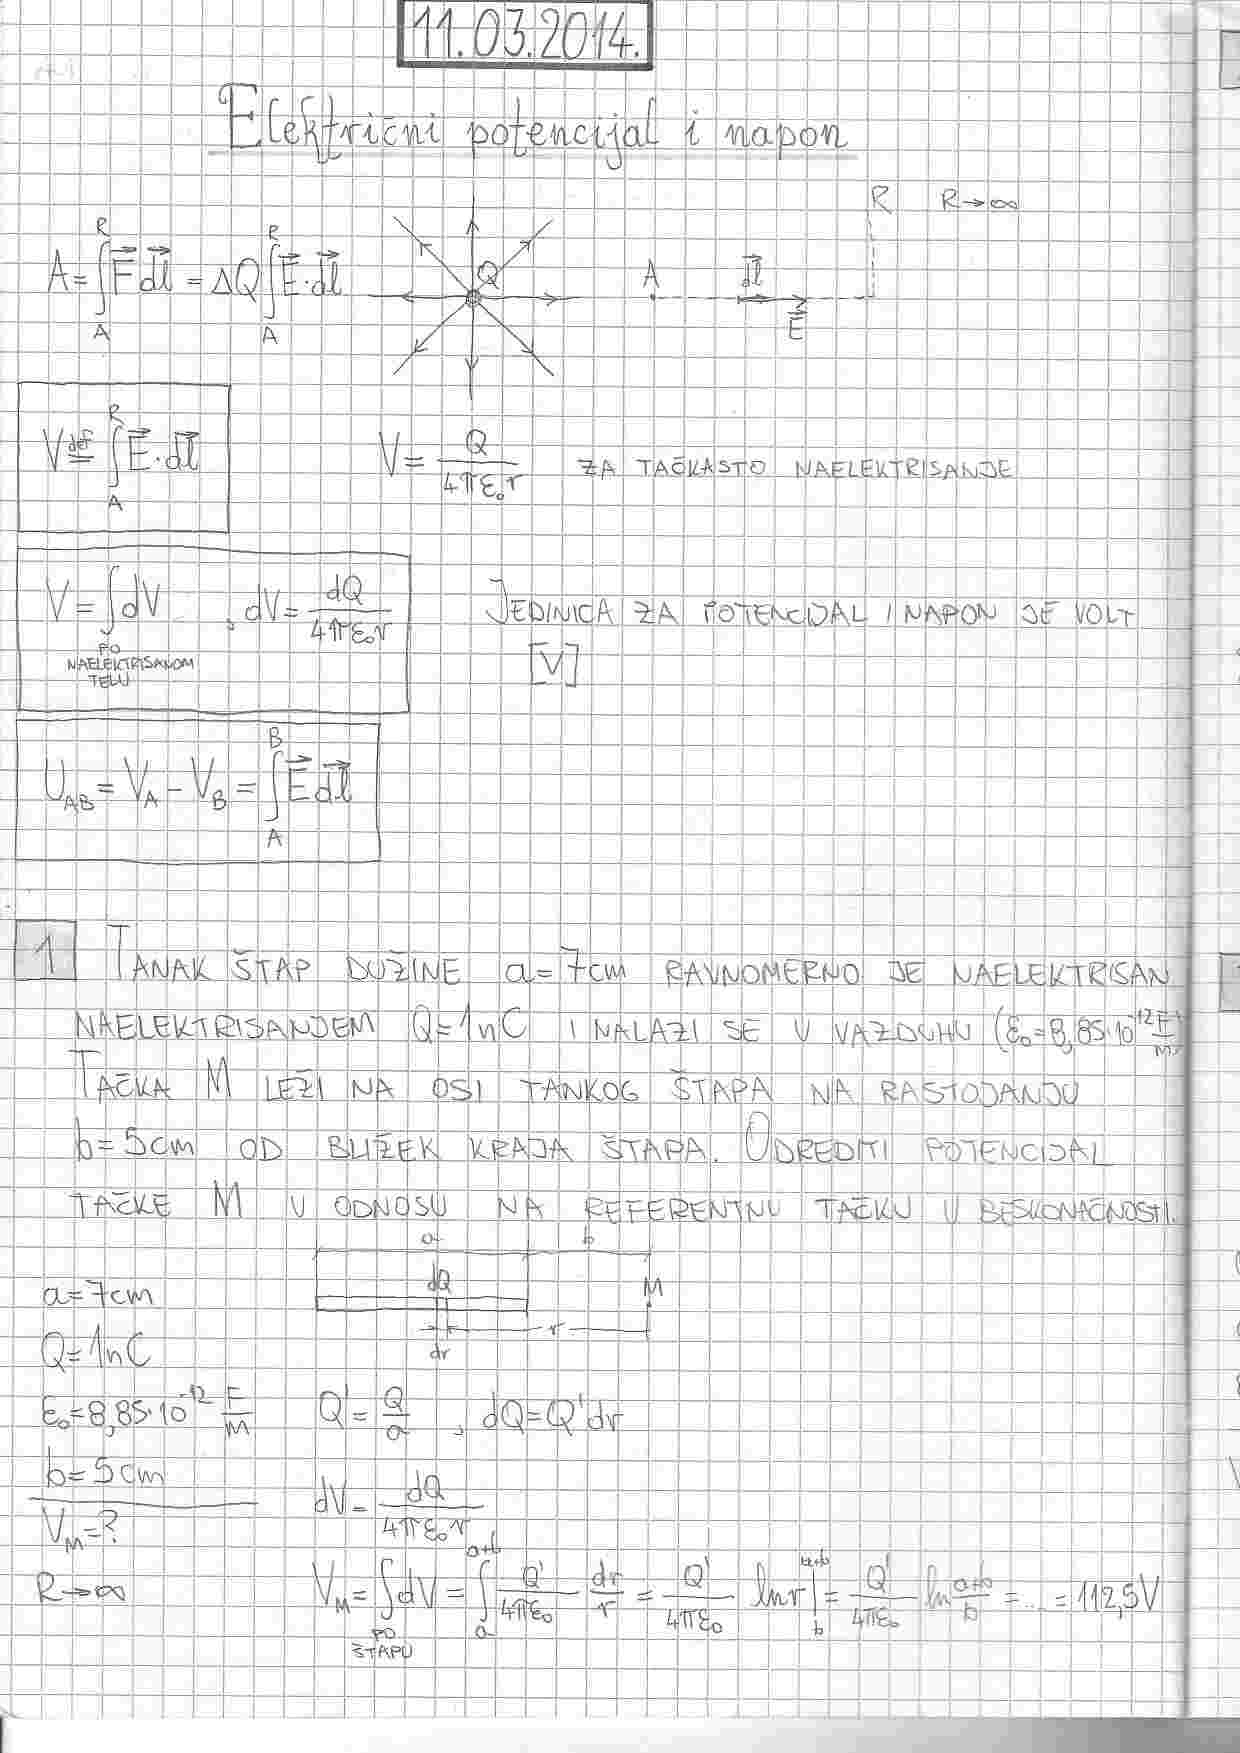 11.03.2014.
Električni potencijal i napon
A = ∫_A^R F⃗ dl⃗ = ΔQ ∫_A^R E⃗ · dl⃗
Q
A dl⃗ E⃗ R R→∞
V =^def ∫_A^R E⃗ · dl⃗
V = Q/(4πε₀r) ZA TAČKASTO NAELEKTRISANJE
V = ∫ dV , dV = dQ/(4πε₀r)
PO
NAELEKTRISANOM
TELU
JEDINICA ZA POTENCIJAL I NAPON JE VOLT
[V]
U_AB = V_A − V_B = ∫_A^B E⃗ dl⃗
1 TANAK ŠTAP DUŽINE a=7cm RAVNOMERNO JE NAELEKTRISAN
NAELEKTRISANJEM Q=1nC I NALAZI SE U VAZDUHU (ε₀=8,85·10⁻¹² F/m)
TAČKA M LEŽI NA OSI TANKOG ŠTAPA NA RASTOJANJU
b=5cm OD BLIŽEK KRAJA ŠTAPA. ODREDITI POTENCIJAL
TAČKE M U ODNOSU NA REFERENTNU TAČKU U BESKONAČNOSTI.
a b
dQ M
r
dr
a=7cm
Q=1nC
ε₀=8,85·10⁻¹² F/m
b=5cm
V_M=?
R→∞
Q' = Q/a , dQ=Q'dr
dV = dQ/(4πε₀r)
V_M = ∫ dV = ∫_a^(a+b) Q'/(4πε₀) dr/r = Q'/(4πε₀) ln r |_b^(a+b) = Q'/(4πε₀) ln (a+b)/b = ... = 112,5V
PO
ŠTAPU